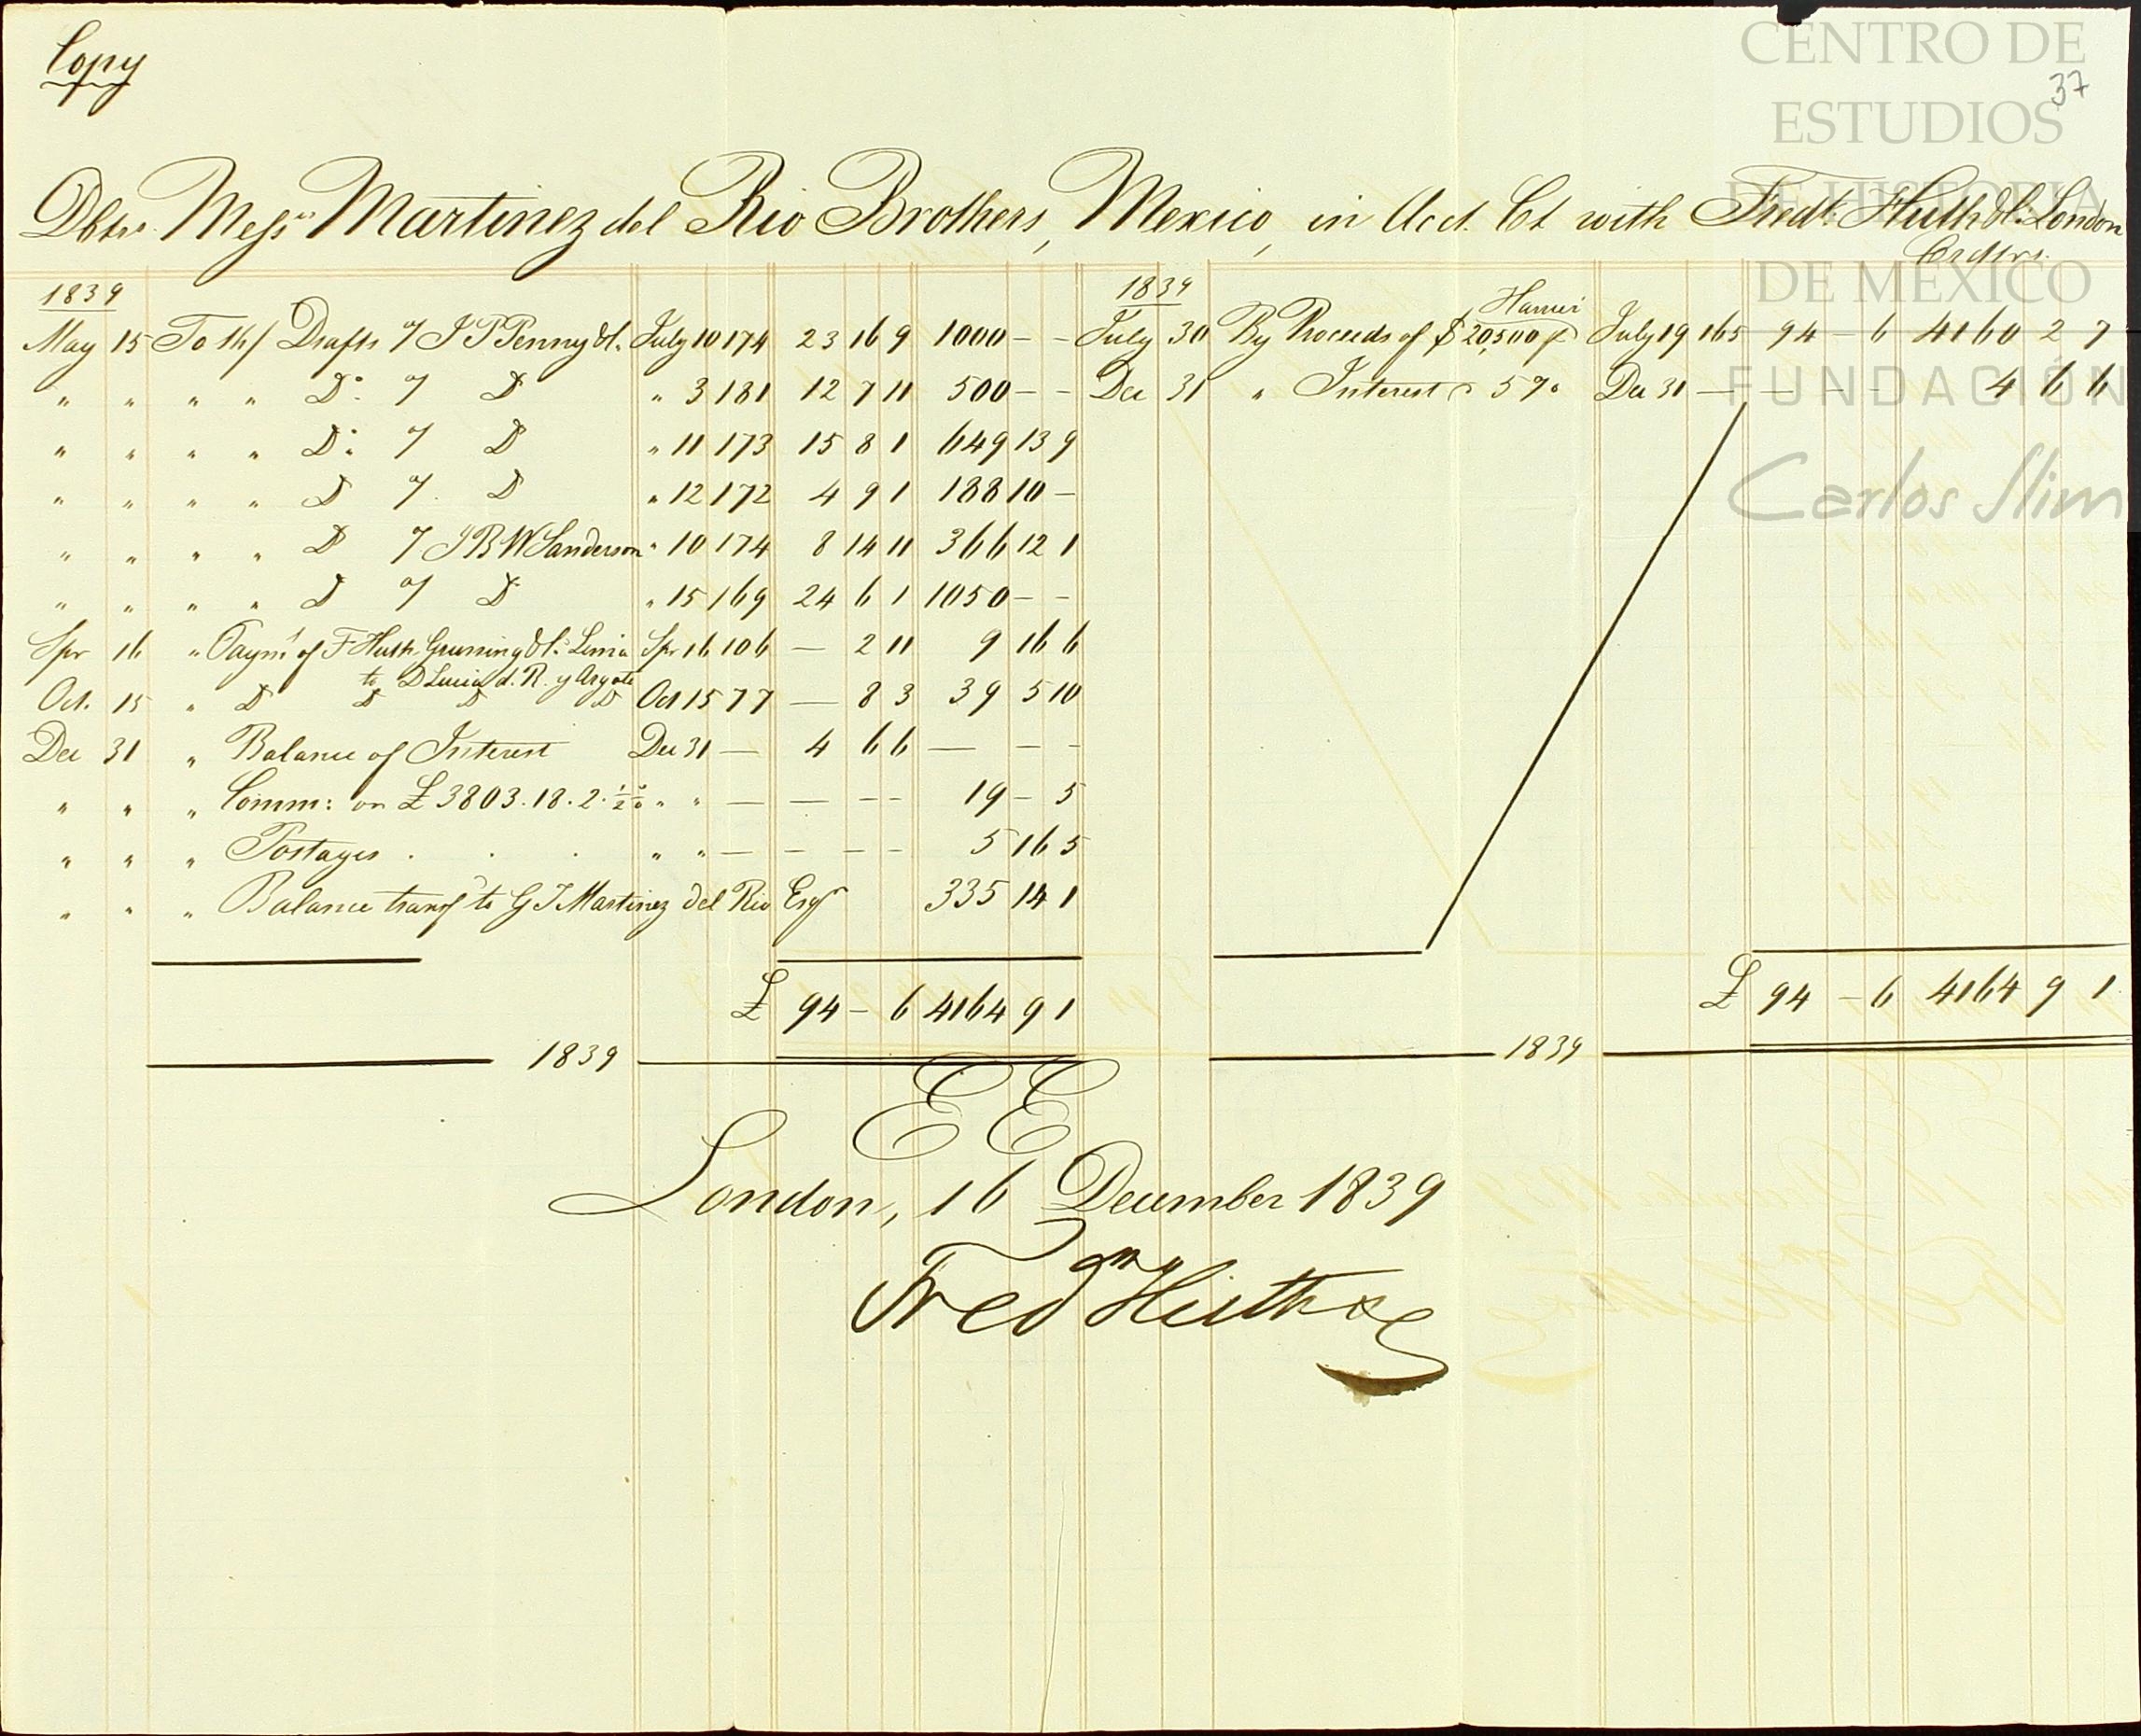 Copy
37
CENTRO DE
ESTUDIOS
DE HISTORIA
DE MÉXICO
FUNDACIÓN
Carlos Slim
Dbtrs. Messrs Martinez del Rio Brothers, Mexico, in Acct. Ct with Fredk. Huth & Co. London
Crdtrs.
1839
May 15 To th/ Drafts o/ J P Penny & Co. July 10 174 23 16 9 1000 - -
" " " " Do. o/ Do " 3 181 12 7 11 500 - -
" " " " Do. o/ Do " 11 173 15 8 1 649 13 9
" " " " Do o/ Do " 12 172 4 9 1 188 10 -
" " " " Do o/ J B W Sanderson " 10 174 8 14 11 366 12 1
" " " " Do o/ Do " 15 169 24 6 1 1050 - -
Spr 16 " Paymt of F Huth Gruning & Co. Lima Spr 16 106 — 2 11 9 16 6
to D Lucia d. R. y Argote
Oct. 15 " Do Do Do Do Oct 15 77 — 8 3 39 5 10
Dec 31 " Balance of Interest Dec 31 — 4 6 6 — - -
" " " Comm: on £ 3803.18.2. ½ % " " — — - - 19 - 5
" " " Postages . . . " " — - - - 5 16 5
" " " Balance transf d to G J Martinez del Rio Esqr 335 14 1
£ 94 - 6 4164 9 1
1839
1839
July 30 By Proceeds of $ 20,500 p July 19 165 94 - 6 4160 2 7
Dec 31 " Interest 5 % Dec 31 — — - - 4 6 6
£ 94 - 6 4164 9 1
1839
E E
London, 16 December 1839
Fredk Huth & Co